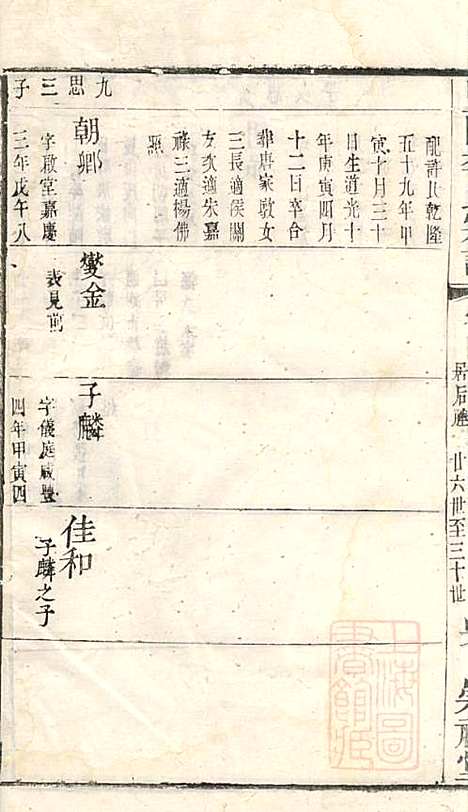 九思三子
配許氏乾隆
五十九年甲
寅十月三十
日生道光十
年庚寅四月
十二日卒合
葬唐家墩女
三長適侯關
女次適朱嘉
祿三適楊佛
照
朝卿
字啟堂嘉慶
三年戊午八
燮金
表見前
子麟
字儀庭咸豐
四年甲寅四
佳和
子麟之子
廿六世至三十世
上海圖書館藏